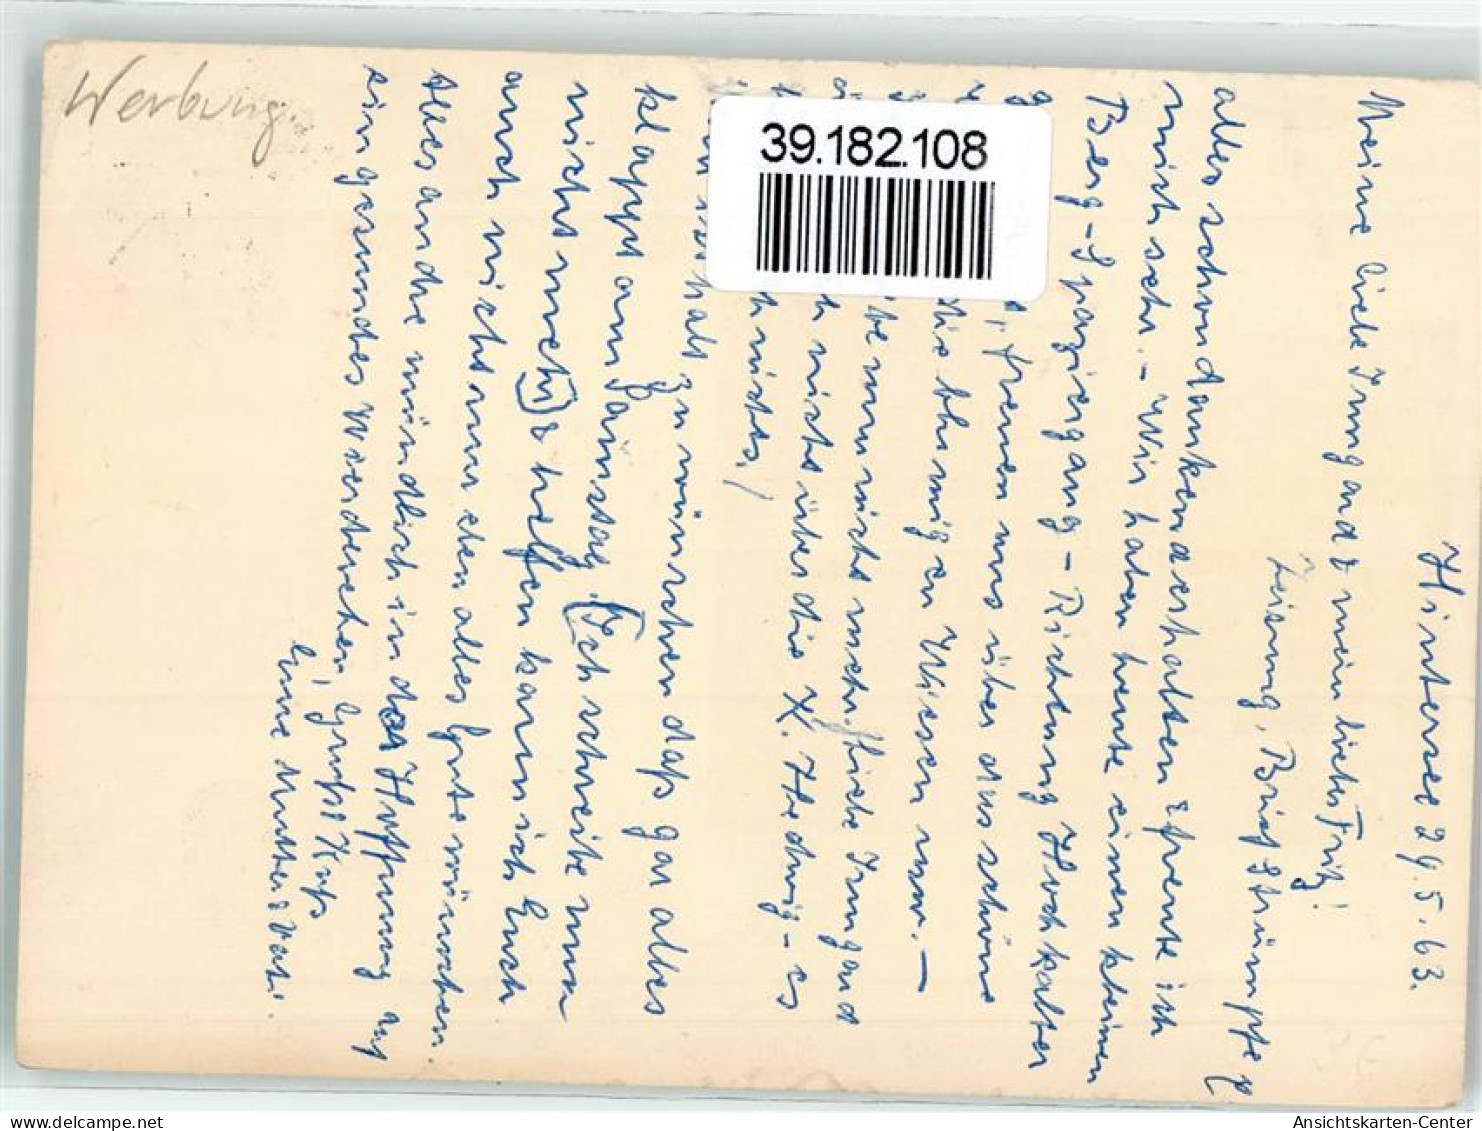 Werbung.
39.182.108
Hintersee 29.5.63.
Meine liebe Irmgard & mein lieber Fritz!
Zeitung, Brief Strümpfe
alles schon dankend erhalten & freute ich
mich sehr. - Wir haben heute einen kleinen
Berg-Spaziergang - Richtung Hochkalter
freuen uns über das schöne
die blumigen Wiesen nur. -
nicht mehr. Liebe Irmgard
nichts über die K. Hedwig - es
nichts!
halt zu wünschen daß gar alles
klappt am Samstag. (Ich schreibe nun
nicht mehr) & helfen kann ich Euch
auch nicht nur eben alles Gute wünschen.
Alles andre mündlich in der Hoffnung auf
ein gesundes Wiedersehen, Gruß & Kuß
Eure Mutter & Vati.
Ansichtskarten-Center